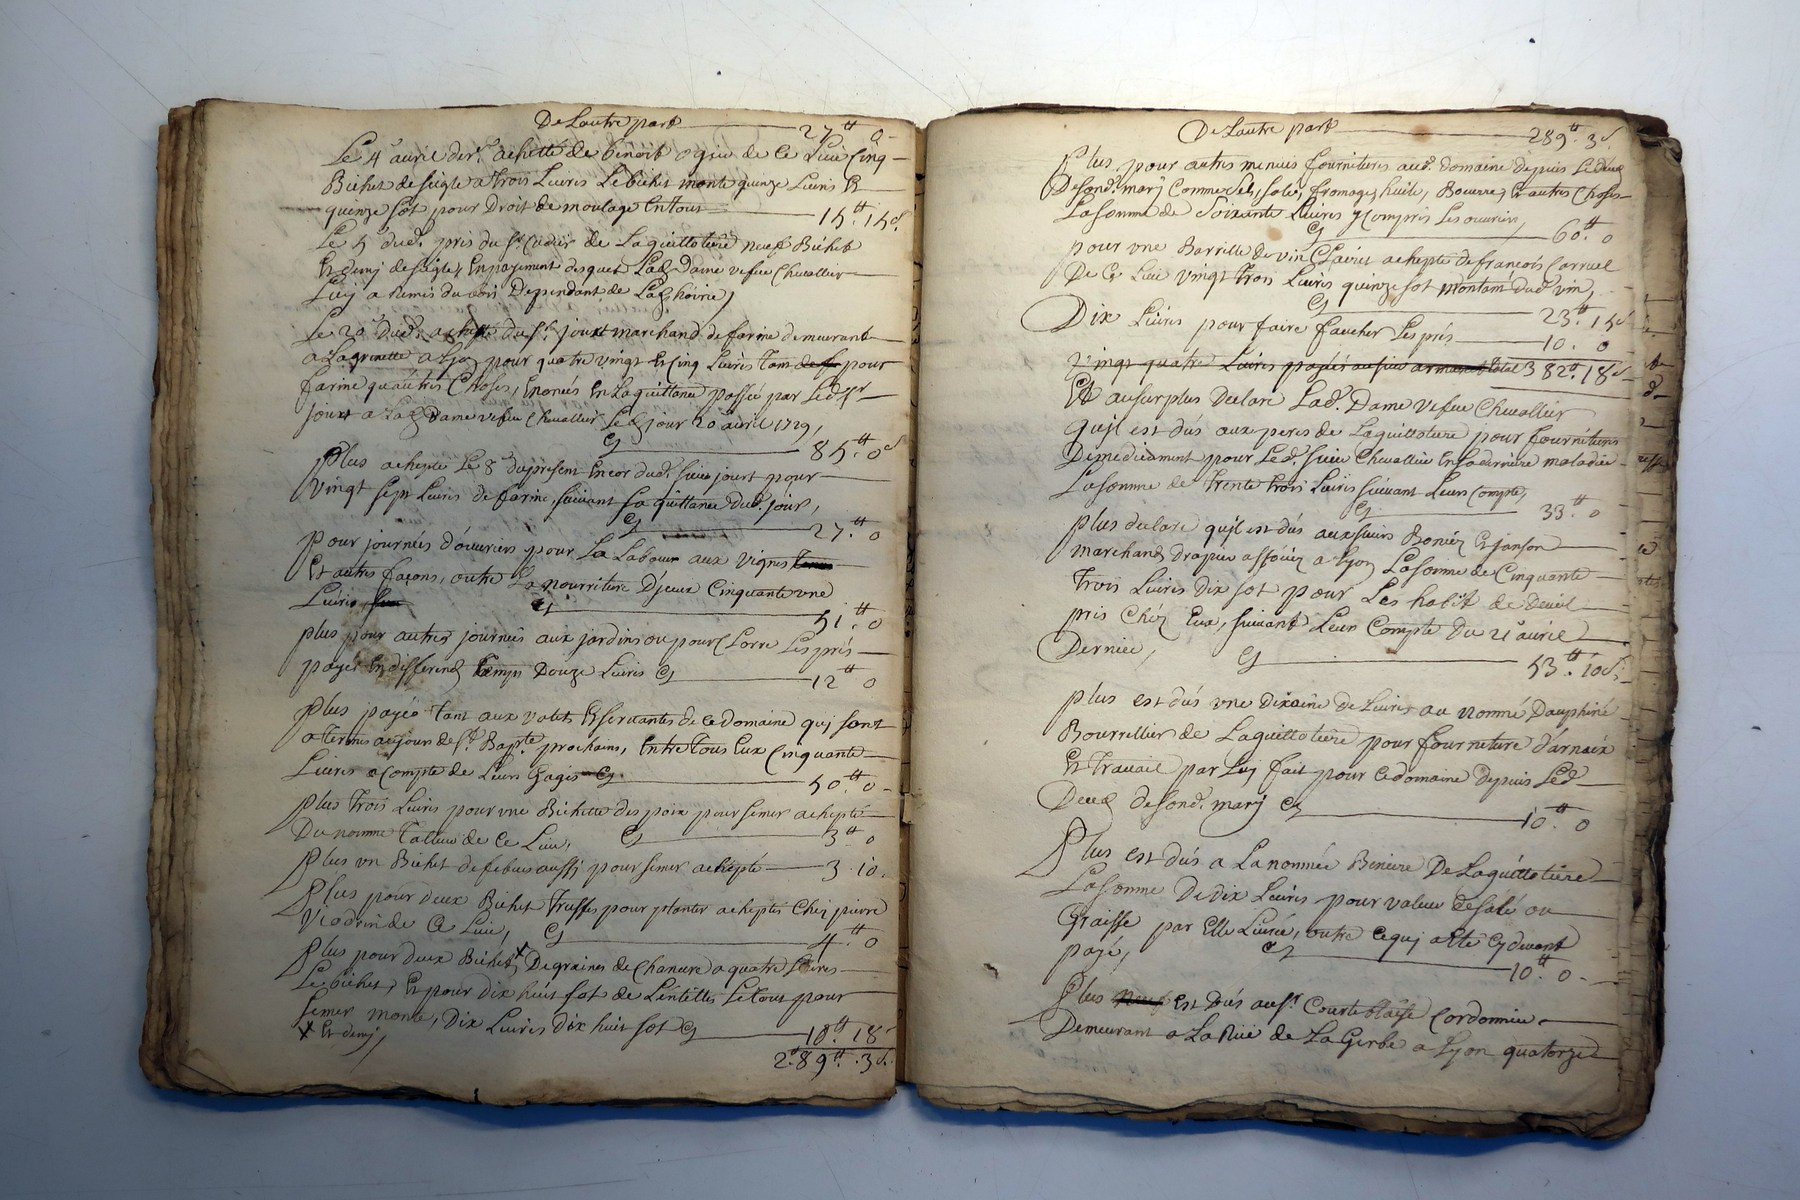 De Lautre part 27ᵗᵗ 0
Le 4ᵉ auril der.ʳ achetté de benoit ogier de Ce Lieu Cinq
Bichet de seigle a trois Liures Le bichet monte quinze Liures Et
quinze sôt pour Droit de moulage En tout 15ᵗᵗ 15ˢ
Le 5ᵉ dud. pris du Sʳ Cudier de Laguillotiere neuf Bichet
Et demy de seigle, En payement desquel Lad. Dame vefue Cheuallier
Luy a remis du bois Dependant de Lad. hoirie,
Le 20ᵉ dud. achepté du Sʳ jouxt marchand de farine demeurant
a La grenette a Lyon pour quatre vingt Et Cinq Liures tant pour
farine qu'autres Choses, Enoncés En La quittance passée par Led. Sʳ
jouxt a Lad. Dame vefue Cheuallier Led. jour 20 auril 1729,
Cy 85ᵗᵗ 0ˢ
Plus achepté Le 8ᵉ du present Encor dud. sieur jouxt pour
vingt sept Liures de farine, suiuant sa quittance dud. jour,
Cy 27ᵗᵗ 0
Pour journées d'ouuriers pour La Labour aux vignes
Et autres façons, outre La nourriture D'jceux Cinquante vne
Liures Cy 51ᵗᵗ 0
plus pour autres journées aux jardins ou pour Clorre Les prés
payés En differend temps Douze Liures Cy 12ᵗᵗ 0
Plus payés tant aux valets Et seruantes de Ce domaine qui sont
a termes au jour de Sᵗ Bapᵗᵉ prochain, Entre tous Eux Cinquante
Liures a Compte de Leurs Gages Cy 50ᵗᵗ 0
Plus trois Liures pour vne Bichette des poix pour semer achepté
Du nommé de Ce Lieu, Cy 3ᵗᵗ 0
Plus vn Bichet de febues aussi pour semer achepté 3 . 10
Plus pour deux Bichet Truffes pour planter acheptés Chez pierre
Viodrin de Ce Lieu, Cy 4ᵗᵗ 0
Plus pour deux Bichet x De graines de Chanure a quatre Liures
Le bichet, Et pour dix huit sot de Lentilles Le tout pour
semer monte, Dix Liures Dix huit sot Cy 10ᵗᵗ 18
x Et demy
289ᵗᵗ 3ˢ
De Lautre part 289ᵗᵗ 3ˢ
Plus pour autres menues fournitures aud. domaine depuis Le deced
De son d. mary Comme sel, salé, fromage, huile, Beurre, Et autres Choses
La somme de Soixante Liures y Compris Les ouuriers,
Cy 60ᵗᵗ 0
pour vne Barrille de vin Clairet achepté de francois Carruel
De Ce Lieu vingt trois Liures quinze sot montant dud. vin,
Cy 23ᵗᵗ 15ˢ
Dix Liures pour faire faucher Les prés 10 . 0
vingt quatre Liures payés au sieur armand total 382ᵗᵗ 18ˢ
Et au surplus declare Lad. Dame vefue Cheuallier
qu'jl est dús aux peres de Laguillotiere pour fournitures
De medicament pour Led. sieur Cheuallier En sa derniere maladie
La somme de trente trois Liures suiuant Leur Compte,
Cy 33ᵗᵗ 0
plus declare qu'jl est dús aux sieurs Et janson
marchands drapier assosiez a Lyon La somme de Cinquante
trois Liures dix sot pour Les habit de Deuil
pris Chéz Eux, suiuant Leur Compte du 21ᵉ auril
Dernier, Cy 53ᵗᵗ 10ˢ
plus est dús vne dixaine de Liures au nommé Dauphiné
Bourrellier de Laguillotiere pour fourniture d'arnaix
Et trauail par Luy fait pour Ce domaine depuis Led.
Deced de son d. mary Cy 10ᵗᵗ 0
Plus est dús a La nommée Beniere De Laguillotiere
La somme De dix Liures pour valeur de salé ou
Graisse par Elle Liurée, outre Ce qui a Eté Cy deuant
payé, Cy 10ᵗᵗ 0
Plus Est dús au Sʳ Courteblaise Cordonnier
Demeurant a La Rüe de La Gerbe a Lyon quatorze